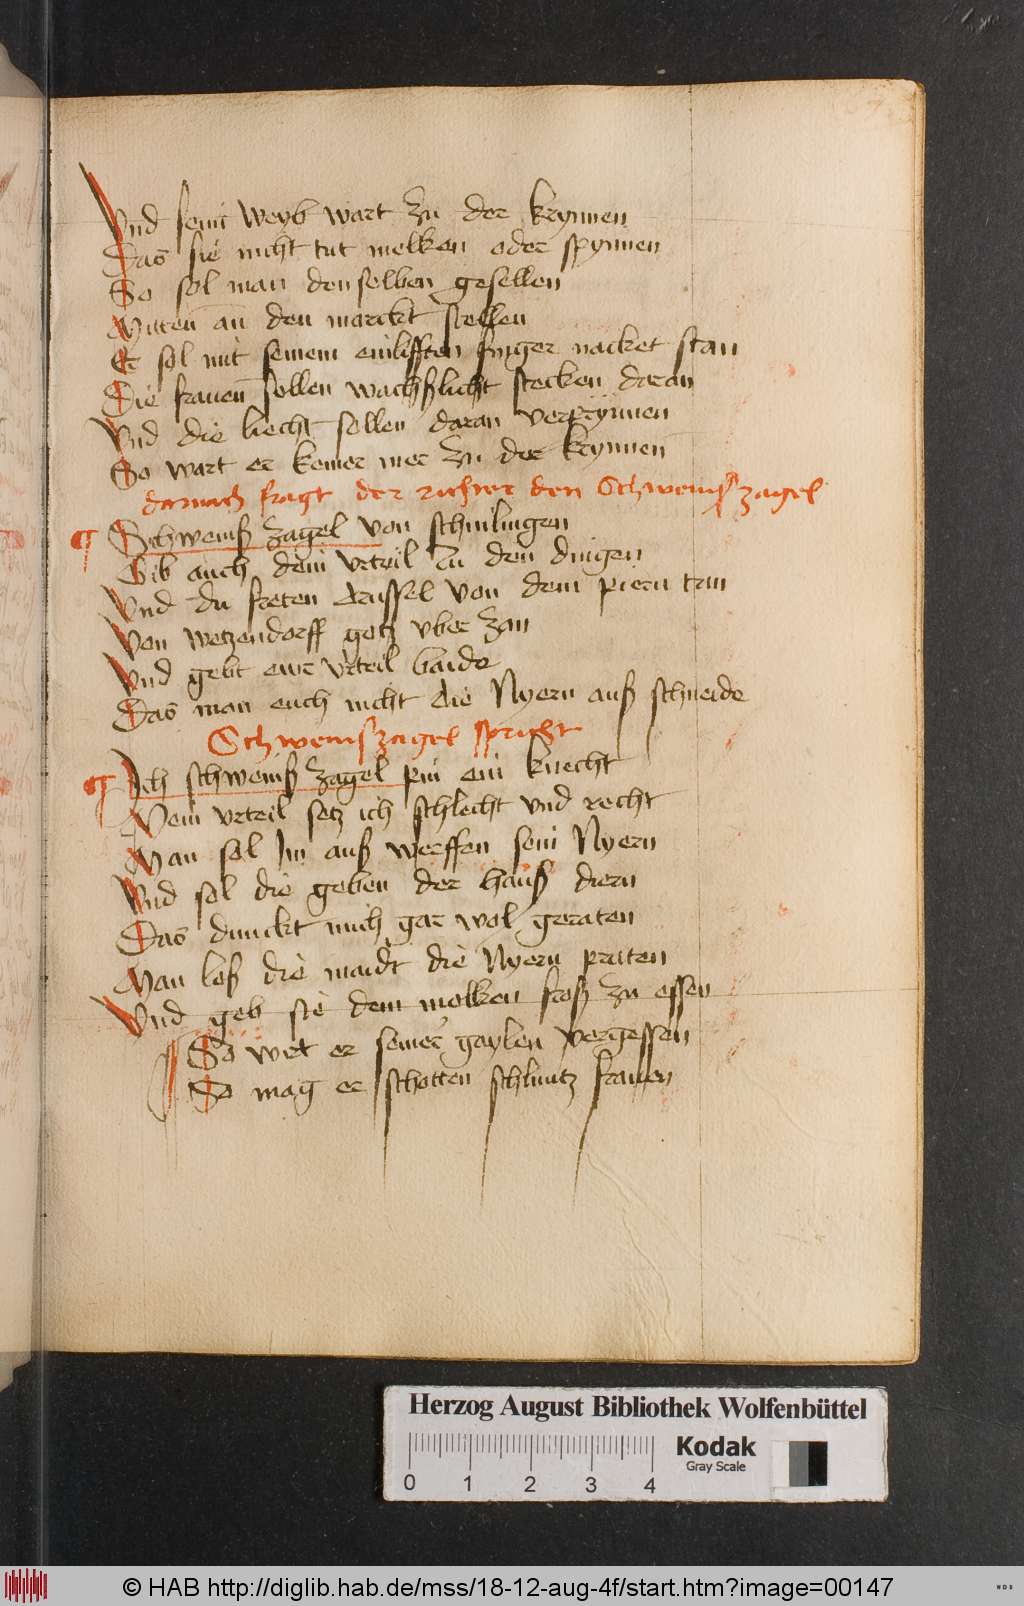 Vnd sein weyb wart zu der krynnen
Das sie nicht tut melken oder spynnen
So sol man denselben gesellen
Mitten an den marckt stellen
Er sol mit seinem einlifften finger nacket stan
Die frauen sollen wachßlicht stecken daran
Vnd die liecht sollen daran verprynnen
So wart er keiner mer zu der krynnen
darnach fragt der richter den Schweinßzagel
Schweinß zagel von schnilingen
Gib auch dein vrteil zu den dingen
Vnd du freten drussel von dem piern tan
Von wetzendorff gotz vber zan
Vnd gebt ewr vrteil baide
Das man euch nicht die Nyern auß schneide
Schweinßzagel spricht
Ich schweinß zagel pin ein knecht
Mein vrteil setz ich schlecht vnd recht
Man sol Im auß werffen sein Nyern
Vnd sol die geben der hauß diern
Das dunckt mich gar wol geraten
Man loß die maidt die Nyern praten
Vnd geb sie dem molken froß zu essen
So wirt er seiner gaylen vergessen
So mag er schotten schluntz frauen
Herzog August Bibliothek Wolfenbüttel
Kodak
Gray Scale
0 1 2 3 4
© HAB http://diglib.hab.de/mss/18-12-aug-4f/start.htm?image=00147